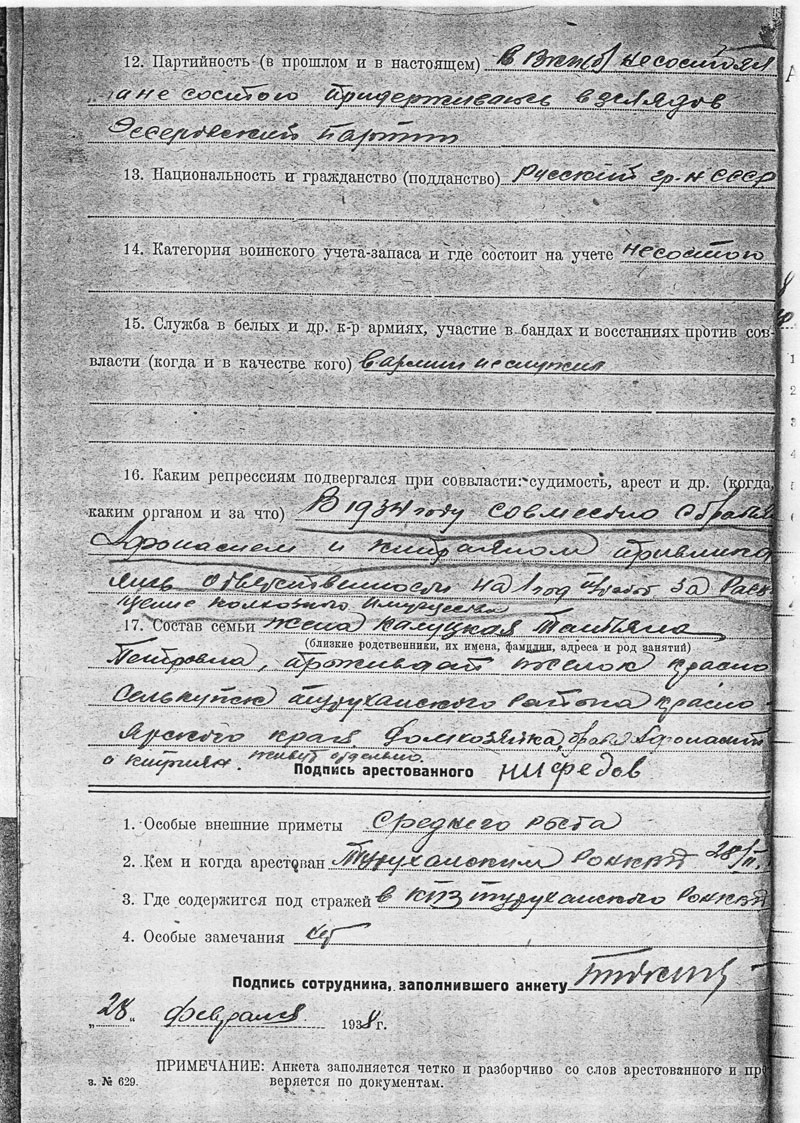 12. Партийность (в прошлом и в настоящем) в ВКП(б) не состоял
и не состою придерживаюсь взглядов
Эссеровский партии
13. Национальность и гражданство (подданство) Русский гр-н СССР
14. Категория воинского учета-запаса и где состоит на учете не состою
15. Служба в белых и др. к-р армиях, участие в бандах и восстаниях против сов-
власти (когда и в качестве кого) в армии не служил
16. Каким репрессиям подвергался при соввласти: судимость, арест и др. (когда,
каким органом и за что) В 1934 году совместно с братья
Афонасием и Киприяном привлека
лись ответственности на 1 год п/работ за Расх
щение колхозного имущества
17. Состав семьи жена Калуцкая Татьяна
(близкие родственники, их имена, фамилии, адреса и род занятий)
Петровна, проживает поселок Красно
Селькупск Туруханского района Красно
ярского края Домхозяйка, братья Афонасий
и Киприян. живут отдельно.
Подпись арестованного Нифедов
1. Особые внешние приметы Среднего роста
2. Кем и когда арестован Туруханским РОНКВД 28/II.
3. Где содержится под стражей в КПЗ Туруханского РОНКВД
4. Особые замечания нет
Подпись сотрудника, заполнившего анкету
„28“ февраля 1938 г.
ПРИМЕЧАНИЕ: Анкета заполняется четко и разборчиво со слов арестованного и про
з. № 629. веряется по документам.